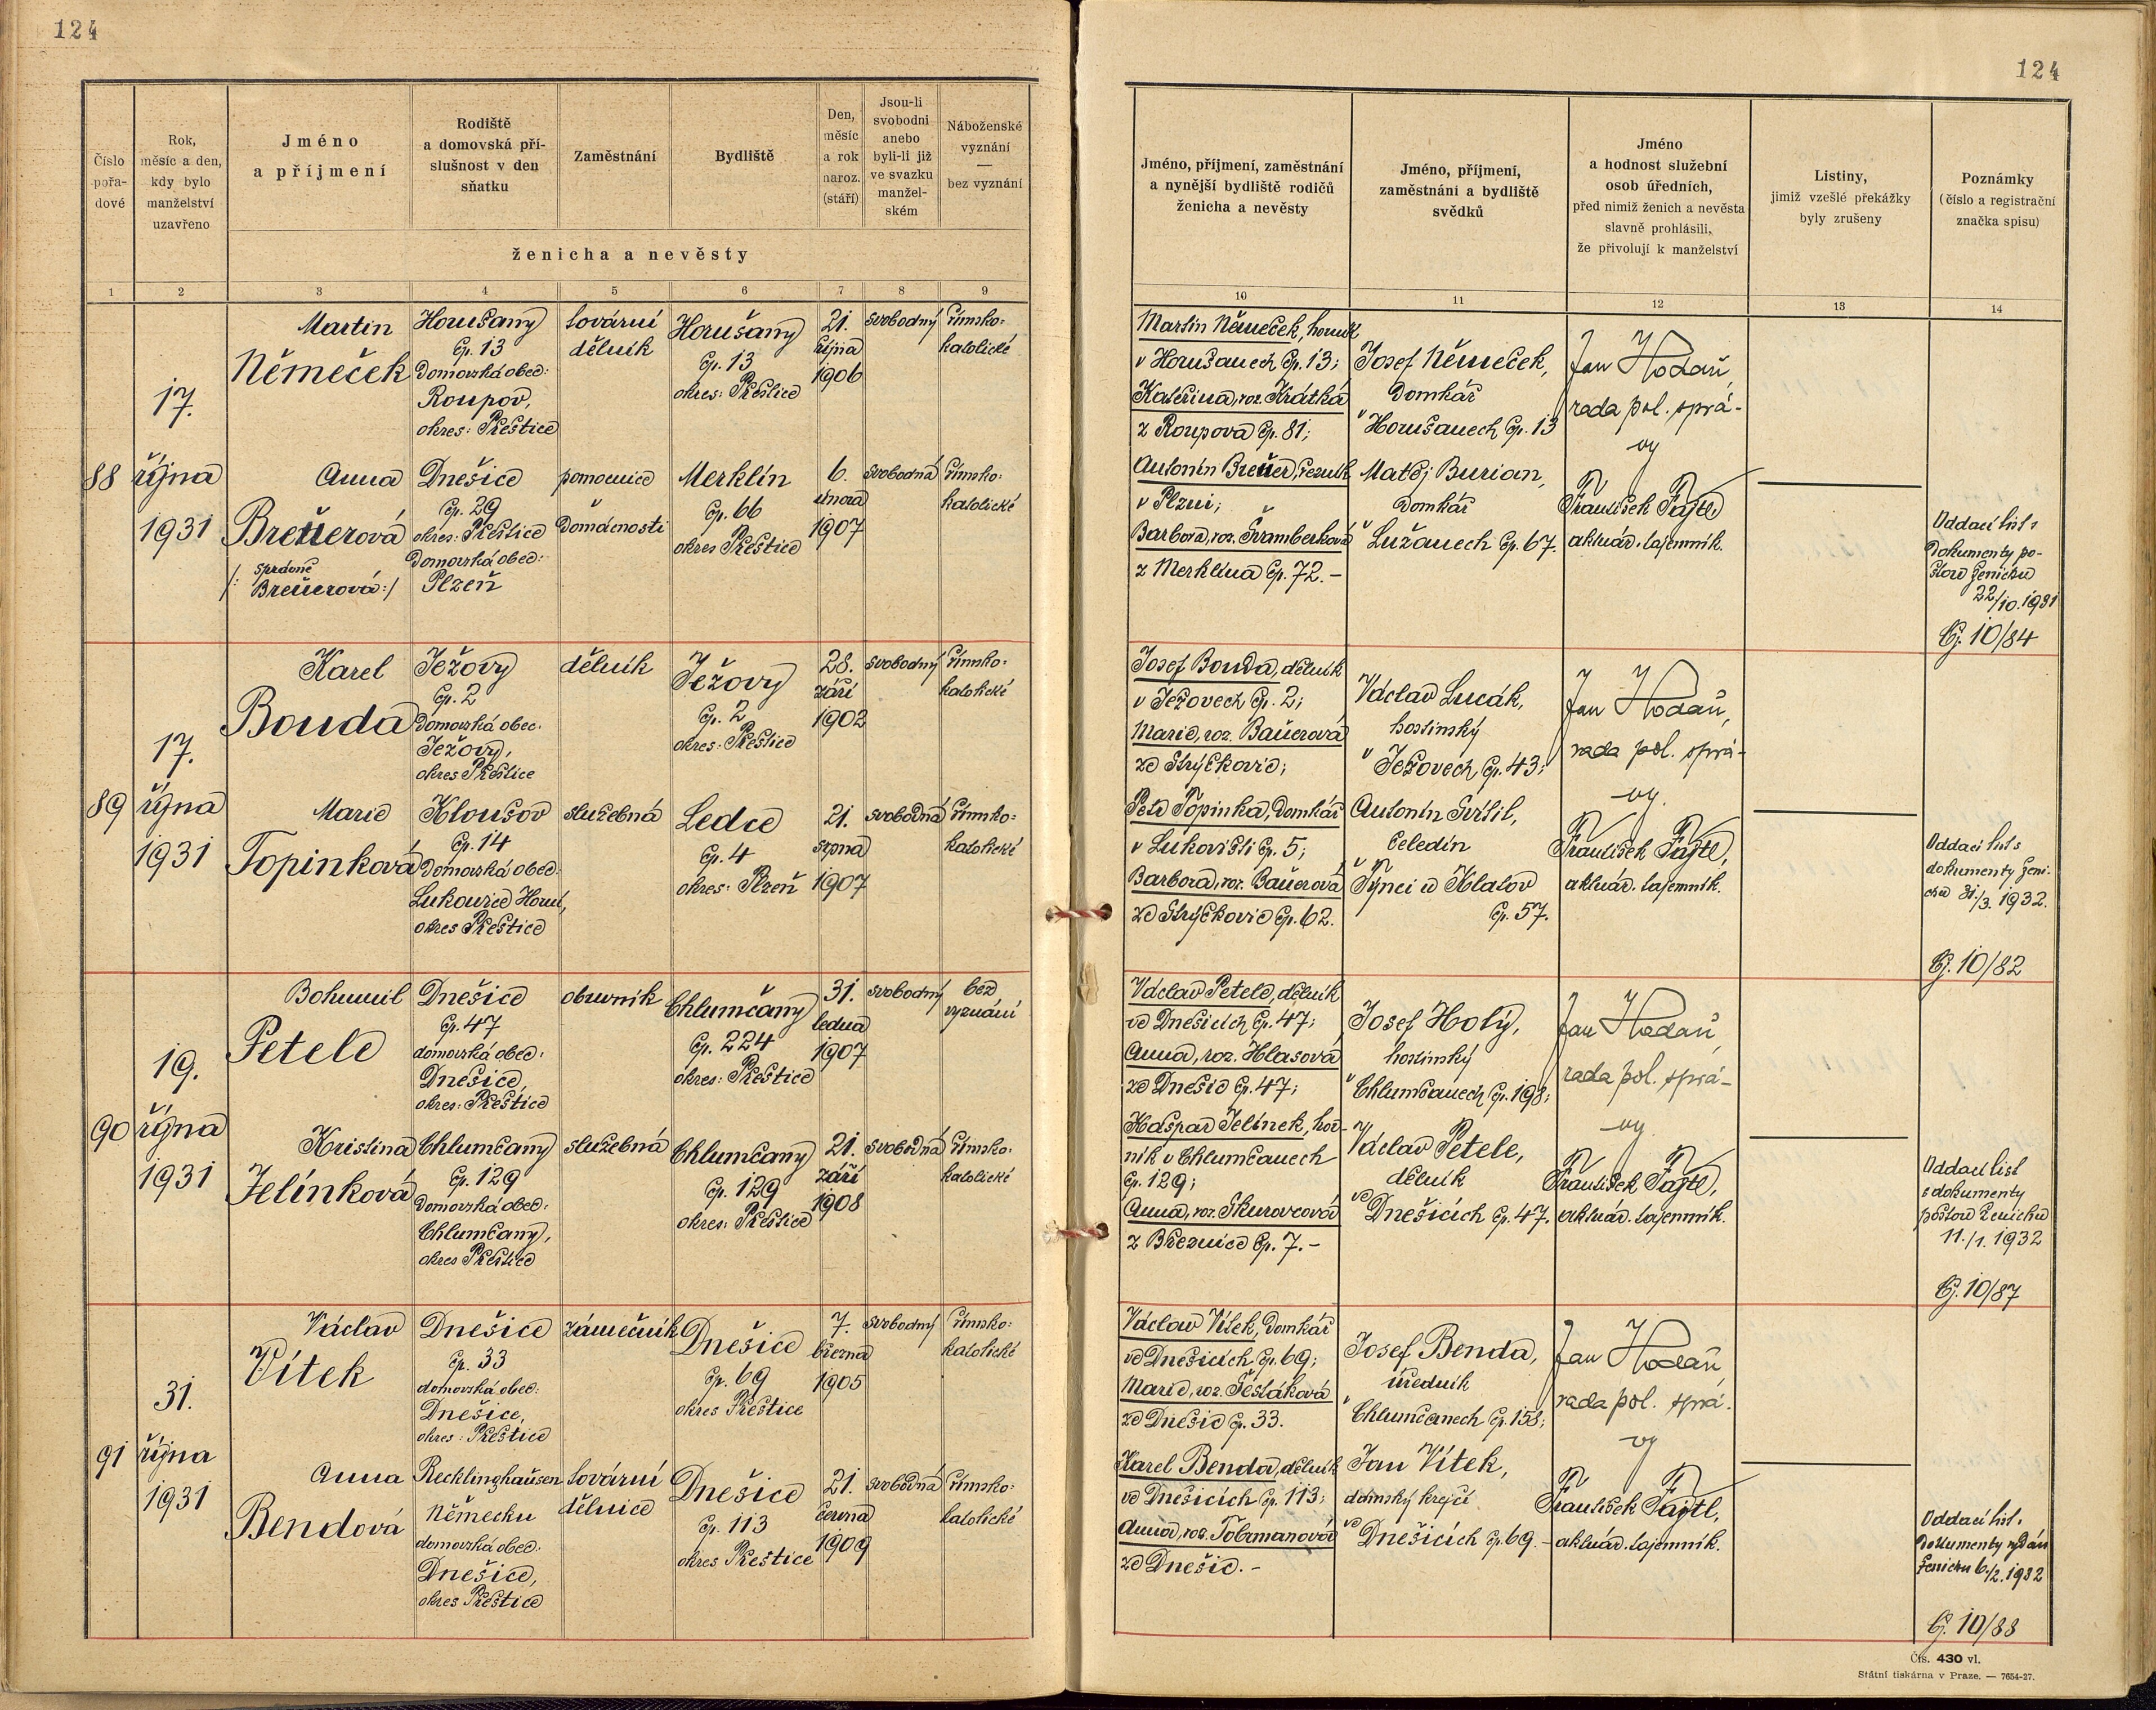 124
124
Číslo
pořa-
dové
Rok,
měsíc a den,
kdy bylo
manželství
uzavřeno
Jméno
a příjmení
Rodiště
a domovská pří-
slušnost v den
sňatku
Zaměstnání
Bydliště
Den,
měsíc
a rok
naroz.
(stáří)
Jsou-li
svobodni
anebo
byli-li již
ve svazku
manžel-
ském
Náboženské
vyznání
—
bez vyznání
ženicha a nevěsty
1 2 3 4 5 6 7 8 9
Jméno, příjmení, zaměstnání
a nynější bydliště rodičů
ženicha a nevěsty
Jméno, příjmení,
zaměstnání a bydliště
svědků
Jméno
a hodnost služební
osob úředních,
před nimiž ženich a nevěsta
slavně prohlásili,
že přivolují k manželství
Listiny,
jimiž vzešlé překážky
byly zrušeny
Poznámky
(číslo a registrační
značka spisu)
10 11 12 13 14
88
17.
října
1931
Martin
Němeček
Horušany
čp. 13
Domovská obec:
Roupov,
okres: Přeštice
tovární
dělník
Horušany
čp. 13
okres: Přeštice
21.
října
1906
svobodný
římsko-
katolické
Anna
Breuerová
/: správně
Breüerová :/
Dnešice
čp. 29
okres: Přeštice
Domovská obec:
Plzeň
pomocnice
v domácnosti
Merklín
čp. 66
okres Přeštice
6.
února
1907
svobodná
římsko-
katolické
Martin Němeček, horník
v Horušanech čp. 13;
Kateřina, roz. Krátká
z Roupova čp. 81;
Antonín Breüer, řezník
v Plzni;
Barbora, roz. Šramberková
z Merklína čp. 72. –
Josef Němeček,
domkář
v Horušanech čp. 13
Matěj Burian,
domkář
v Lužanech čp. 67.
Jan Hodaň,
rada pol. sprá-
vy
František Fajtl,
aktuár. tajemník.
Oddací list s
dokumenty po-
slán ženichu
22/10. 1931
Čj. 10/84
89
17.
října
1931
Karel
Bouda
Ježovy
čp. 2
Domovská obec:
Ježovy,
okres Přeštice
dělník
Ježovy
čp. 2
okres: Přeštice
28.
září
1902
svobodný
římsko-
katolické
Marie
Topinková
Kloušov
čp. 14
Domovská obec:
Lukovice Horní,
okres Přeštice
služebná
Ledce
čp. 4
okres: Plzeň
21.
srpna
1907
svobodná
římsko-
katolické
Josef Bouda, dělník
v Ježovech čp. 2;
Marie, roz. Bauerová
ze Strýčkovic;
Petr Topinka, domkář
v Lukovišti čp. 5;
Barbora, roz. Bauerová
ze Strýčkovic čp. 62.
Václav Lucák,
hostinský
v Ježovech čp. 43;
Antonín Svítil,
čeledín
v Týnci u Klatov
čp. 57.
Jan Hodaň,
rada pol. sprá-
vy.
František Fajtl,
aktuár. tajemník.
Oddací list s
dokumenty ženi-
cha 31/3. 1932.
Čj. 10/82
90
19.
října
1931
Bohumil
Petele
Dnešice
čp. 47
domovská obec:
Dnešice,
okres: Přeštice
obuvník
Chlumčany
čp. 224
okres: Přeštice
31.
ledna
1907
svobodný
bez
vyznání
Kristina
Jelínková
Chlumčany
čp. 129
Domovská obec:
Chlumčany,
okres Přeštice
služebná
Chlumčany
čp. 129
okres: Přeštice
21.
září
1908
svobodná
římsko-
katolické
Václav Petele, dělník
ve Dnešicích čp. 47;
Anna, roz. Hlasová
ze Dnešic čp. 47;
Kašpar Jelínek, hor-
ník v Chlumčanech
čp. 129;
Anna, roz. Skurovcová
z Březnice čp. 7. –
Josef Holý,
hostinský
v Chlumčanech čp. 198;
Václav Petele,
dělník
ve Dnešicích čp. 47.
Jan Hodaň,
rada pol. sprá-
vy.
František Fajtl,
aktuár. tajemník.
Oddací list
s dokumenty
poslán ženichu
11./1. 1932
Čj. 10/87
91
31.
října
1931
Václav
Vítek
Dnešice
čp. 33
domovská obec:
Dnešice,
okres: Přeštice
zámečník
Dnešice
čp. 69
okres Přeštice
7.
března
1905
svobodný
římsko-
katolické
Anna
Bendová
Recklinghausen
Německu
domovská obec:
Dnešice,
okres Přeštice
tovární
dělnice
Dnešice
čp. 113
okres Přeštice
21.
června
1909
svobodná
římsko-
katolické
Václav Vítek, domkář
ve Dnešicích čp. 69;
Marie, roz. Šestáková
ze Dnešic čp. 33.
Karel Benda, dělník
ve Dnešicích čp. 113;
Anna, roz. Tolzmanová
ze Dnešic. –
Josef Benda,
úředník
v Chlumčanech čp. 158;
Jan Vítek,
dámský krejčí
ve Dnešicích čp. 69. –
Jan Hodaň,
rada pol. sprá-
vy
František Fajtl,
aktuár. tajemník.
Oddací list s
dokumenty vydán
ženichu 6./2. 1932
Čj. 10/88
Čís. 430 vl.
Státní tiskárna v Praze. — 7654-27.